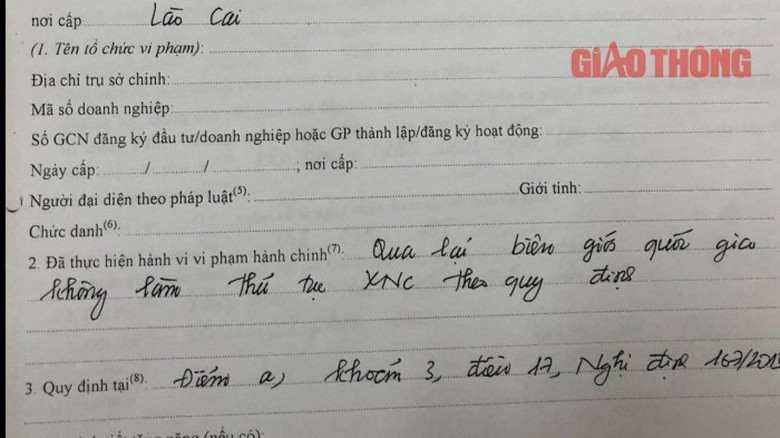 nơi cấp Lào Cai
(1. Tên tổ chức vi phạm):
GIAO THÔNG
Địa chỉ trụ sở chính:
Mã số doanh nghiệp:
Số GCN đăng ký đầu tư/doanh nghiệp hoặc GP thành lập/đăng ký hoạt động:
Ngày cấp: / / ; nơi cấp:
Người đại diện theo pháp luật(5): Giới tính:
Chức danh(6):
2. Đã thực hiện hành vi vi phạm hành chinh(7): Qua lại biên giới quốc gia
không làm thủ tục XNC theo quy định
3. Quy định tại(8): Điểm a, khoản 3, điều 17, Nghị định 167/2013